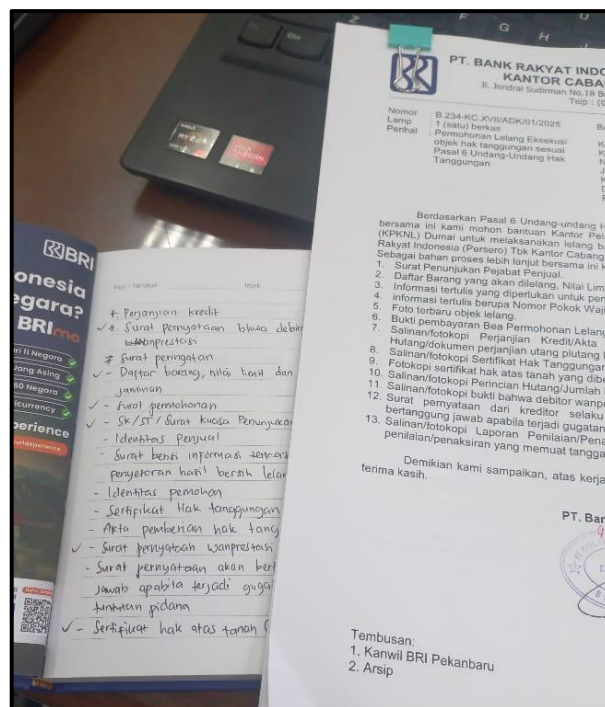 F
G
H
Ctrl
AMD
RYZEN
AMD
RADEON
BRI
onesia
egara?
BRImo
ri 11 Negara
ang Asing
60 Negara
currency
perience
Hari / Tanggal
Topik
+ Perjanjian kredit
✓ + Surat pernyataan bhwa debit
wanprestasi
+ Surat peringatan
✓ - Daftar barang, nilai limit dan
jaminan
✓ - Surat permohonan
✓ - SK/ST/Surat kuasa Penunjukan
- Identitas penjual
- Surat berisi informasi
penyetoran hasil bersih lelan
- Identitas pemohon
- Sertifikat Hak tanggungan
- Akta pemberian hak tang
✓ - Surat pernyataan wanprestasi
- Surat pernyataan akan bert
jawab apabila terjadi guga
tuntutan pidana
✓ - Sertifikat hak atas tanah
PT. BANK RAKYAT INDO
KANTOR CABA
Jl. Jendral Sudirman No.18 B
Telp : (0
Nomor : B.234-KC.XVII/ADK/01/2025
Lamp : 1 (satu) berkas
Perihal : Permohonan Lelang Eksekusi
objek hak tanggungan sesuai
Pasal 6 Undang-Undang Hak
Tanggungan
Berdasarkan Pasal 6 Undang-undang H
bersama ini kami mohon bantuan Kantor Pel
(KPKNL) Dumai untuk melaksanakan lelang ba
Rakyat Indonesia (Persero) Tbk Kantor Cabang
Sebagai bahan proses lebih lanjut bersama ini k
1. Surat Penunjukan Pejabat Penjual.
2. Daftar Barang yang akan dilelang, Nilai Lim
3. Informasi tertulis yang diperlukan untuk pen
4. informasi tertulis berupa Nomor Pokok Waji
5. Foto terbaru objek lelang.
6. Bukti pembayaran Bea Permohonan Lelang
7. Salinan/fotokopi Perjanjian Kredit/Akta
Hutang/dokumen perjanjian utang piutang
8. Salinan/fotokopi Sertifikat Hak Tanggungan
9. Fotokopi sertifikat hak atas tanah yang dibe
10. Salinan/fotokopi Perincian Hutang/Jumlah
11. Salinan/fotokopi bukti bahwa debitor wanpr
12. Surat pernyataan dari kreditor selaku
bertanggung jawab apabila terjadi gugatan
13. Salinan/fotokopi Laporan Penilaian/Pena
penilaian/penaksiran yang memuat tangga
Demikian kami sampaikan, atas kerja
terima kasih.
PT. Ban
Tembusan:
1. Kanwil BRI Pekanbaru
2. Arsip